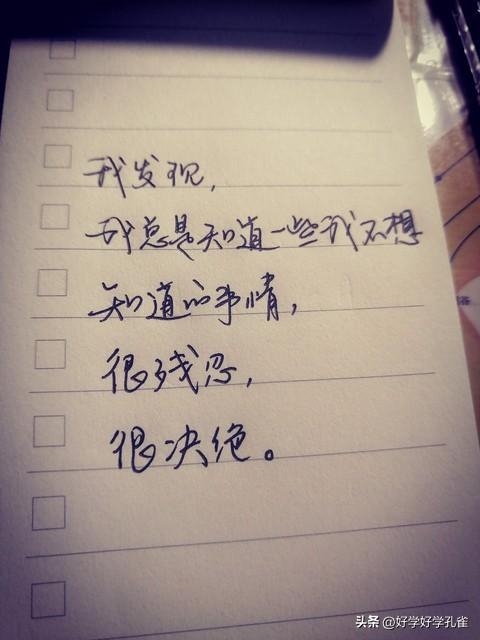 我发现，
我总是知道一些我不想
知道的事情，
很残忍，
很决绝。
头条 @好学好学孔雀